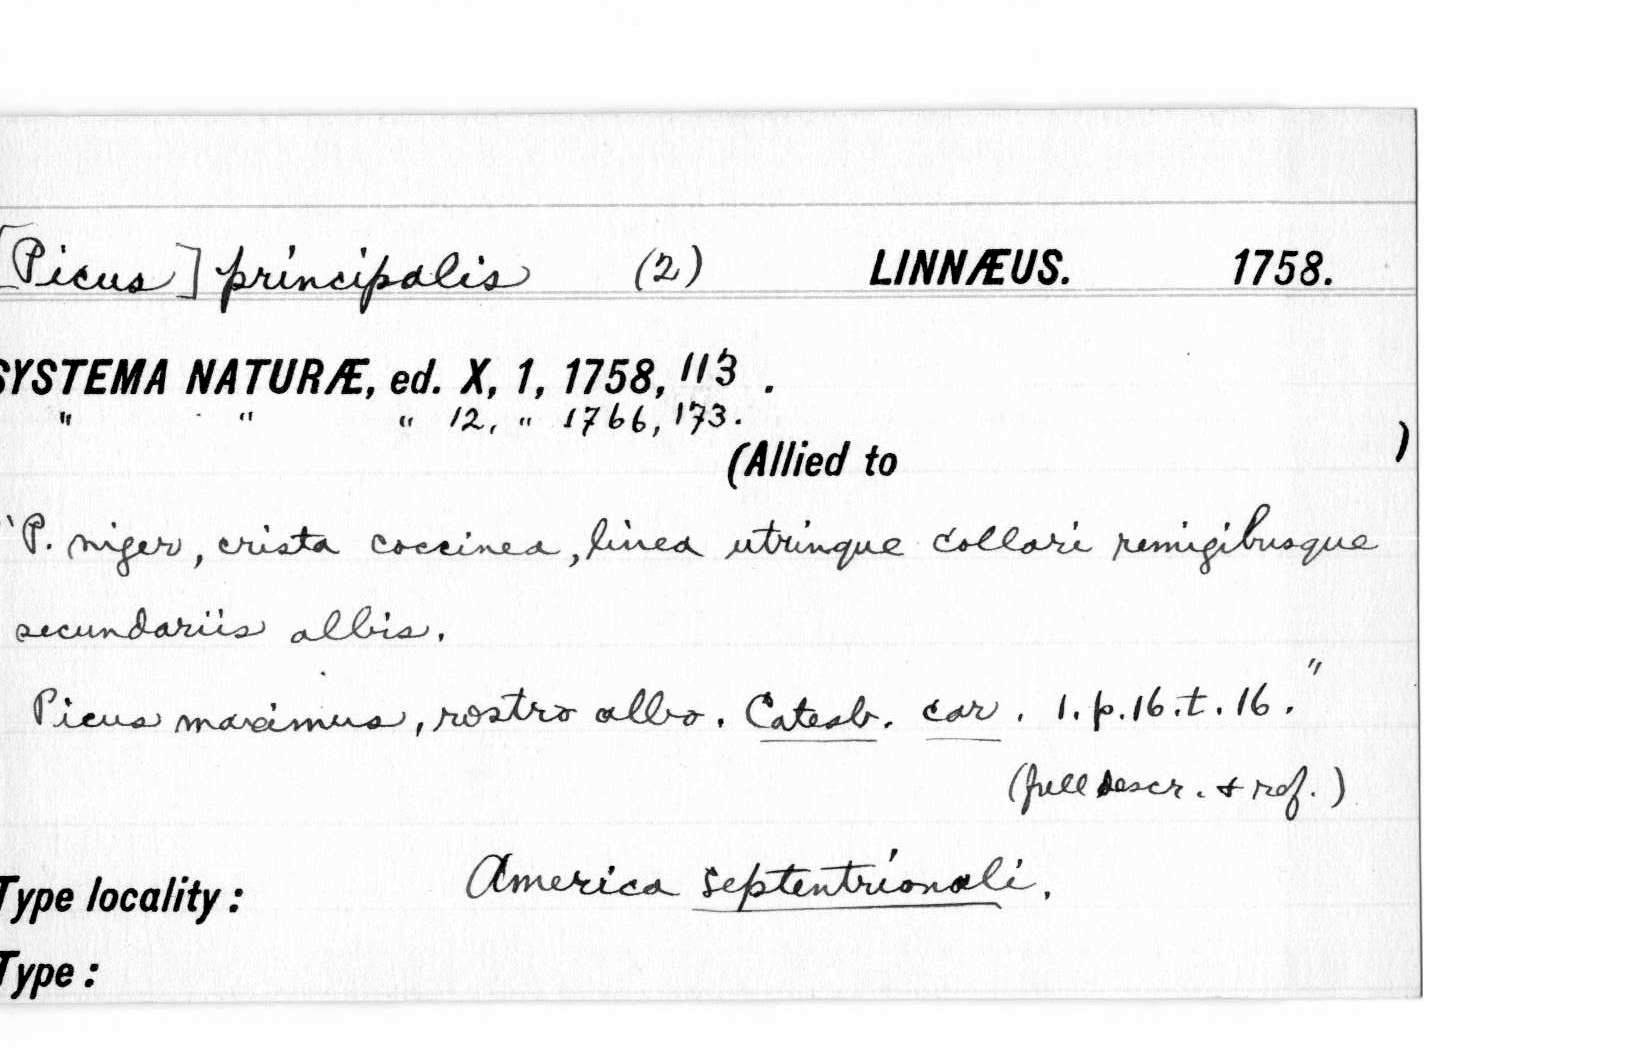 [Picus] principalis (2) LINNÆUS. 1758.
SYSTEMA NATURÆ, ed. X, 1, 1758, 113 .
" " " 12, " 1766, 173.
(Allied to )
"P. niger, crista coccinea, linea utrinque collari remigibusque
secundariis albis.
Picus maximus, rostro albo. Catesb. car. 1. p. 16. t. 16."
(full descr. & ref.)
Type locality: America septentrionali.
Type: